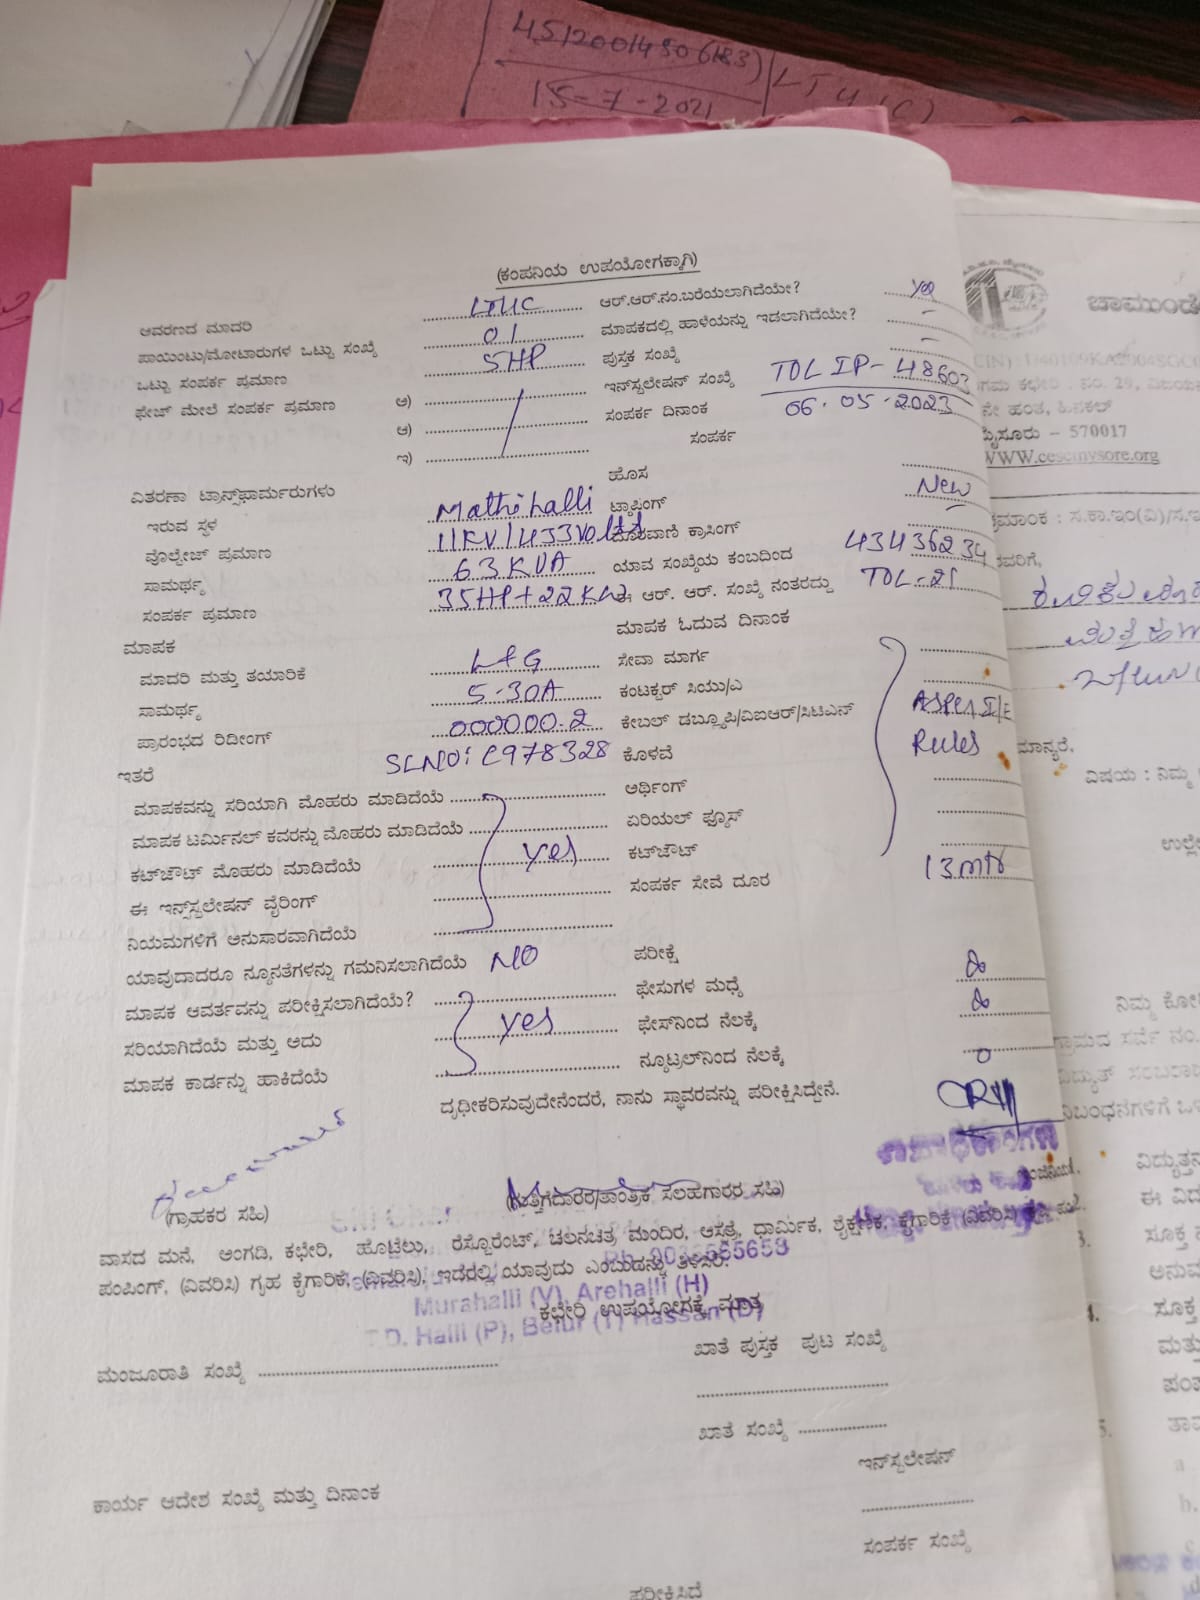 15-7-2021
(ಕಂಪನಿಯ ಉಪಯೋಗಕ್ಕಾಗಿ)
ಆವರಣದ ಮಾದರಿ ಆರ್.ಆರ್.ನಂ.ಬರೆಯಲಾಗಿದೆಯೇ? yes
ಪಾಯಿಂಟು/ಮೋಟಾರುಗಳ ಒಟ್ಟು ಸಂಖ್ಯೆ 01 ಮಾಪಕದಲ್ಲಿ ಹಾಳೆಯನ್ನು ಇಡಲಾಗಿದೆಯೇ? -
ಒಟ್ಟು ಸಂಪರ್ಕ ಪ್ರಮಾಣ 5HP ಪುಸ್ತಕ ಸಂಖ್ಯೆ -
ಫೇಜ್ ಮೇಲೆ ಸಂಪರ್ಕ ಪ್ರಮಾಣ ಅ) ಇನ್‌ಸ್ಟಲೇಷನ್ ಸಂಖ್ಯೆ TDL IP-48603
ಆ) ಸಂಪರ್ಕ ದಿನಾಂಕ 06.05.2023
ಇ) ಸಂಪರ್ಕ
ವಿತರಣಾ ಟ್ರಾನ್ಸ್‌ಫಾರ್ಮರುಗಳು ಹೊಸ New
ಇರುವ ಸ್ಥಳ Mathihalli ಟ್ಯಾಪಿಂಗ್
ವೋಲ್ಟೇಜ್ ಪ್ರಮಾಣ 11KV/433Volts ದೂರವಾಣಿ ಕ್ರಾಸಿಂಗ್
ಸಾಮರ್ಥ್ಯ 63 KVA ಯಾವ ಸಂಖ್ಯೆಯ ಕಂಬದಿಂದ 43436234
ಸಂಪರ್ಕ ಪ್ರಮಾಣ 35HP+22KW ಈ ಆರ್. ಆರ್. ಸಂಖ್ಯೆ ನಂತರದ್ದು TDL-21
ಮಾಪಕ ಮಾಪಕ ಓದುವ ದಿನಾಂಕ
ಮಾದರಿ ಮತ್ತು ತಯಾರಿಕೆ L+G ಸೇವಾ ಮಾರ್ಗ
ಸಾಮರ್ಥ್ಯ 5-30A ಕಂಟಕ್ಟರ್ ಸಿಯು/ಎ
ಪ್ರಾರಂಭದ ರಿಡೀಂಗ್ 000000.2 ಕೇಬಲ್ ಡಬ್ಲ್ಯೂಪಿ/ವಿಐಆರ್/ಸಿಟಿಎನ್ As per I/E
ಇತರೆ SLNO: C978328 ಕೊಳವೆ Rules
ಮಾಪಕವನ್ನು ಸರಿಯಾಗಿ ಮೊಹರು ಮಾಡಿದೆಯೆ ಅರ್ಥಿಂಗ್
ಮಾಪಕ ಟರ್ಮಿನಲ್ ಕವರನ್ನು ಮೊಹರು ಮಾಡಿದೆಯೆ ಏರಿಯಲ್ ಫ್ಯೂಸ್
ಕಟ್‌ಔಟ್ ಮೊಹರು ಮಾಡಿದೆಯೆ yes ಕಟ್‌ಔಟ್
ಈ ಇನ್ಸ್‌ಟಲೇಷನ್ ವೈರಿಂಗ್ ಸಂಪರ್ಕ ಸೇವೆ ದೂರ 13mtr
ನಿಯಮಗಳಿಗೆ ಅನುಸಾರವಾಗಿದೆಯೆ
ಯಾವುದಾದರೂ ನ್ಯೂನತೆಗಳನ್ನು ಗಮನಿಸಲಾಗಿದೆಯೆ NO ಪರೀಕ್ಷೆ
ಮಾಪಕ ಆವರ್ತವನ್ನು ಪರೀಕ್ಷಿಸಲಾಗಿದೆಯೆ? ಫೇಸುಗಳ ಮಧ್ಯೆ
ಸರಿಯಾಗಿದೆಯೆ ಮತ್ತು ಅದು yes ಫೇಸ್‌ನಿಂದ ನೆಲಕ್ಕೆ
ಮಾಪಕ ಕಾರ್ಡನ್ನು ಹಾಕಿದೆಯೆ ನ್ಯೂಟ್ರಲ್‌ನಿಂದ ನೆಲಕ್ಕೆ 0
ದೃಢೀಕರಿಸುವುದೇನೆಂದರೆ, ನಾನು ಸ್ಥಾವರವನ್ನು ಪರೀಕ್ಷಿಸಿದ್ದೇನೆ.
(ಗ್ರಾಹಕರ ಸಹಿ) (ಗುತ್ತಿಗೆದಾರರ/ತಾಂತ್ರಿಕ ಸಲಹಗಾರರ ಸಹಿ)
ವಾಸದ ಮನೆ, ಅಂಗಡಿ, ಕಛೇರಿ, ಹೊಟೆಲು, ರೆಸ್ಟೋರೆಂಟ್, ಚಲನಚಿತ್ರ ಮಂದಿರ, ಆಸ್ಪತ್ರೆ, ಧಾರ್ಮಿಕ, ಶೈಕ್ಷಣಿಕ, ಕೈಗಾರಿಕೆ (ವಿವರಿಸಿ)
ಪಂಪಿಂಗ್, (ವಿವರಿಸಿ) ಗೃಹ ಕೈಗಾರಿಕೆ, (ವಿವರಿಸಿ), ಇದರಲ್ಲಿ ಯಾವುದು ಎಂಬುದನ್ನು ತಿಳಿಸಿರಿ.
Murahalli (V), Arehalli (H)
ಕಛೇರಿ ಉಪಯೋಗಕ್ಕೆ ಮಾತ್ರ
T.D. Halli (P), Belur (T) Hassan (D)
ಮಂಜೂರಾತಿ ಸಂಖ್ಯೆ ಖಾತೆ ಪುಸ್ತಕ ಪುಟ ಸಂಖ್ಯೆ
ಖಾತೆ ಸಂಖ್ಯೆ
ಇನ್‌ಸ್ಟಲೇಷನ್
ಕಾರ್ಯ ಆದೇಶ ಸಂಖ್ಯೆ ಮತ್ತು ದಿನಾಂಕ
ಸಂಪರ್ಕ ಸಂಖ್ಯೆ
ಪರೀಕ್ಷಿಸಿದೆ
ಚಾಮುಂಡೇ
ನೇ ಹಂತ, ಹಿನಕಲ್
ಮೈಸೂರು – 570017
WWW.cescmysore.org
ಮಾನ್ಯರೆ,
ವಿಷಯ : ನಿಮ್ಮ